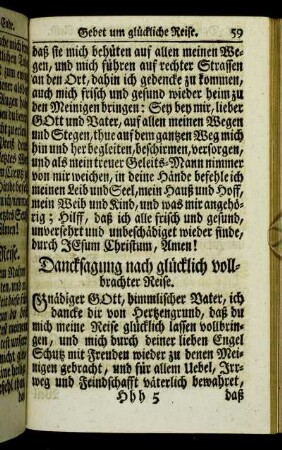 Gebet um glückliche Reise. 59
daß sie mich behüten auf allen meinen We-
gen, und mich führen auf rechter Strassen
an den Ort, dahin ich gedencke zu kommen,
auch mich frisch und gesund wieder heim zu
den Meinigen bringen: Sey bey mir, lieber
GOtt und Vater, auf allen meinen Wegen
und Stegen, thue auf dem gantzen Weg mich
hin und her begleiten, beschirmen, versorgen,
und als mein treuer Geleits-Mann nimmer
von mir weichen, in deine Hände befehle ich
meinen Leib und Seel, mein Hauß und Hoff,
mein Weib und Kind, und was mir angehö-
rig; Hilff, daß ich alle frisch und gesund,
unversehrt und unbeschädiget wieder finde,
durch JEsum Christum, Amen!
Dancksagung nach glücklich voll-
brachter Reise.
Gnädiger GOtt, himmlischer Vater, ich
dancke dir von Hertzengrund, daß du
mich meine Reise glücklich lassen vollbrin-
gen, und mich durch deiner lieben Engel
Schutz mit Freuden wieder zu denen Mei-
nigen gebracht, und für allem Uebel, Irr-
weg und Feindschafft väterlich bewahret,
Hhh 5 daß